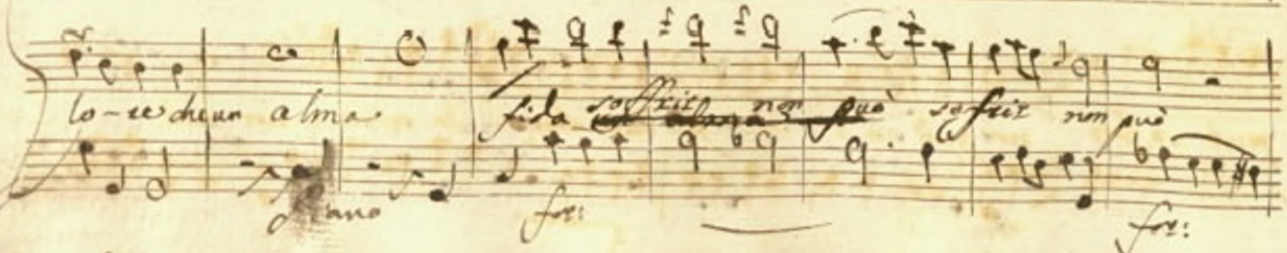 lo-re che un alma fida soffrir non può soffrir non può
piano for: for: